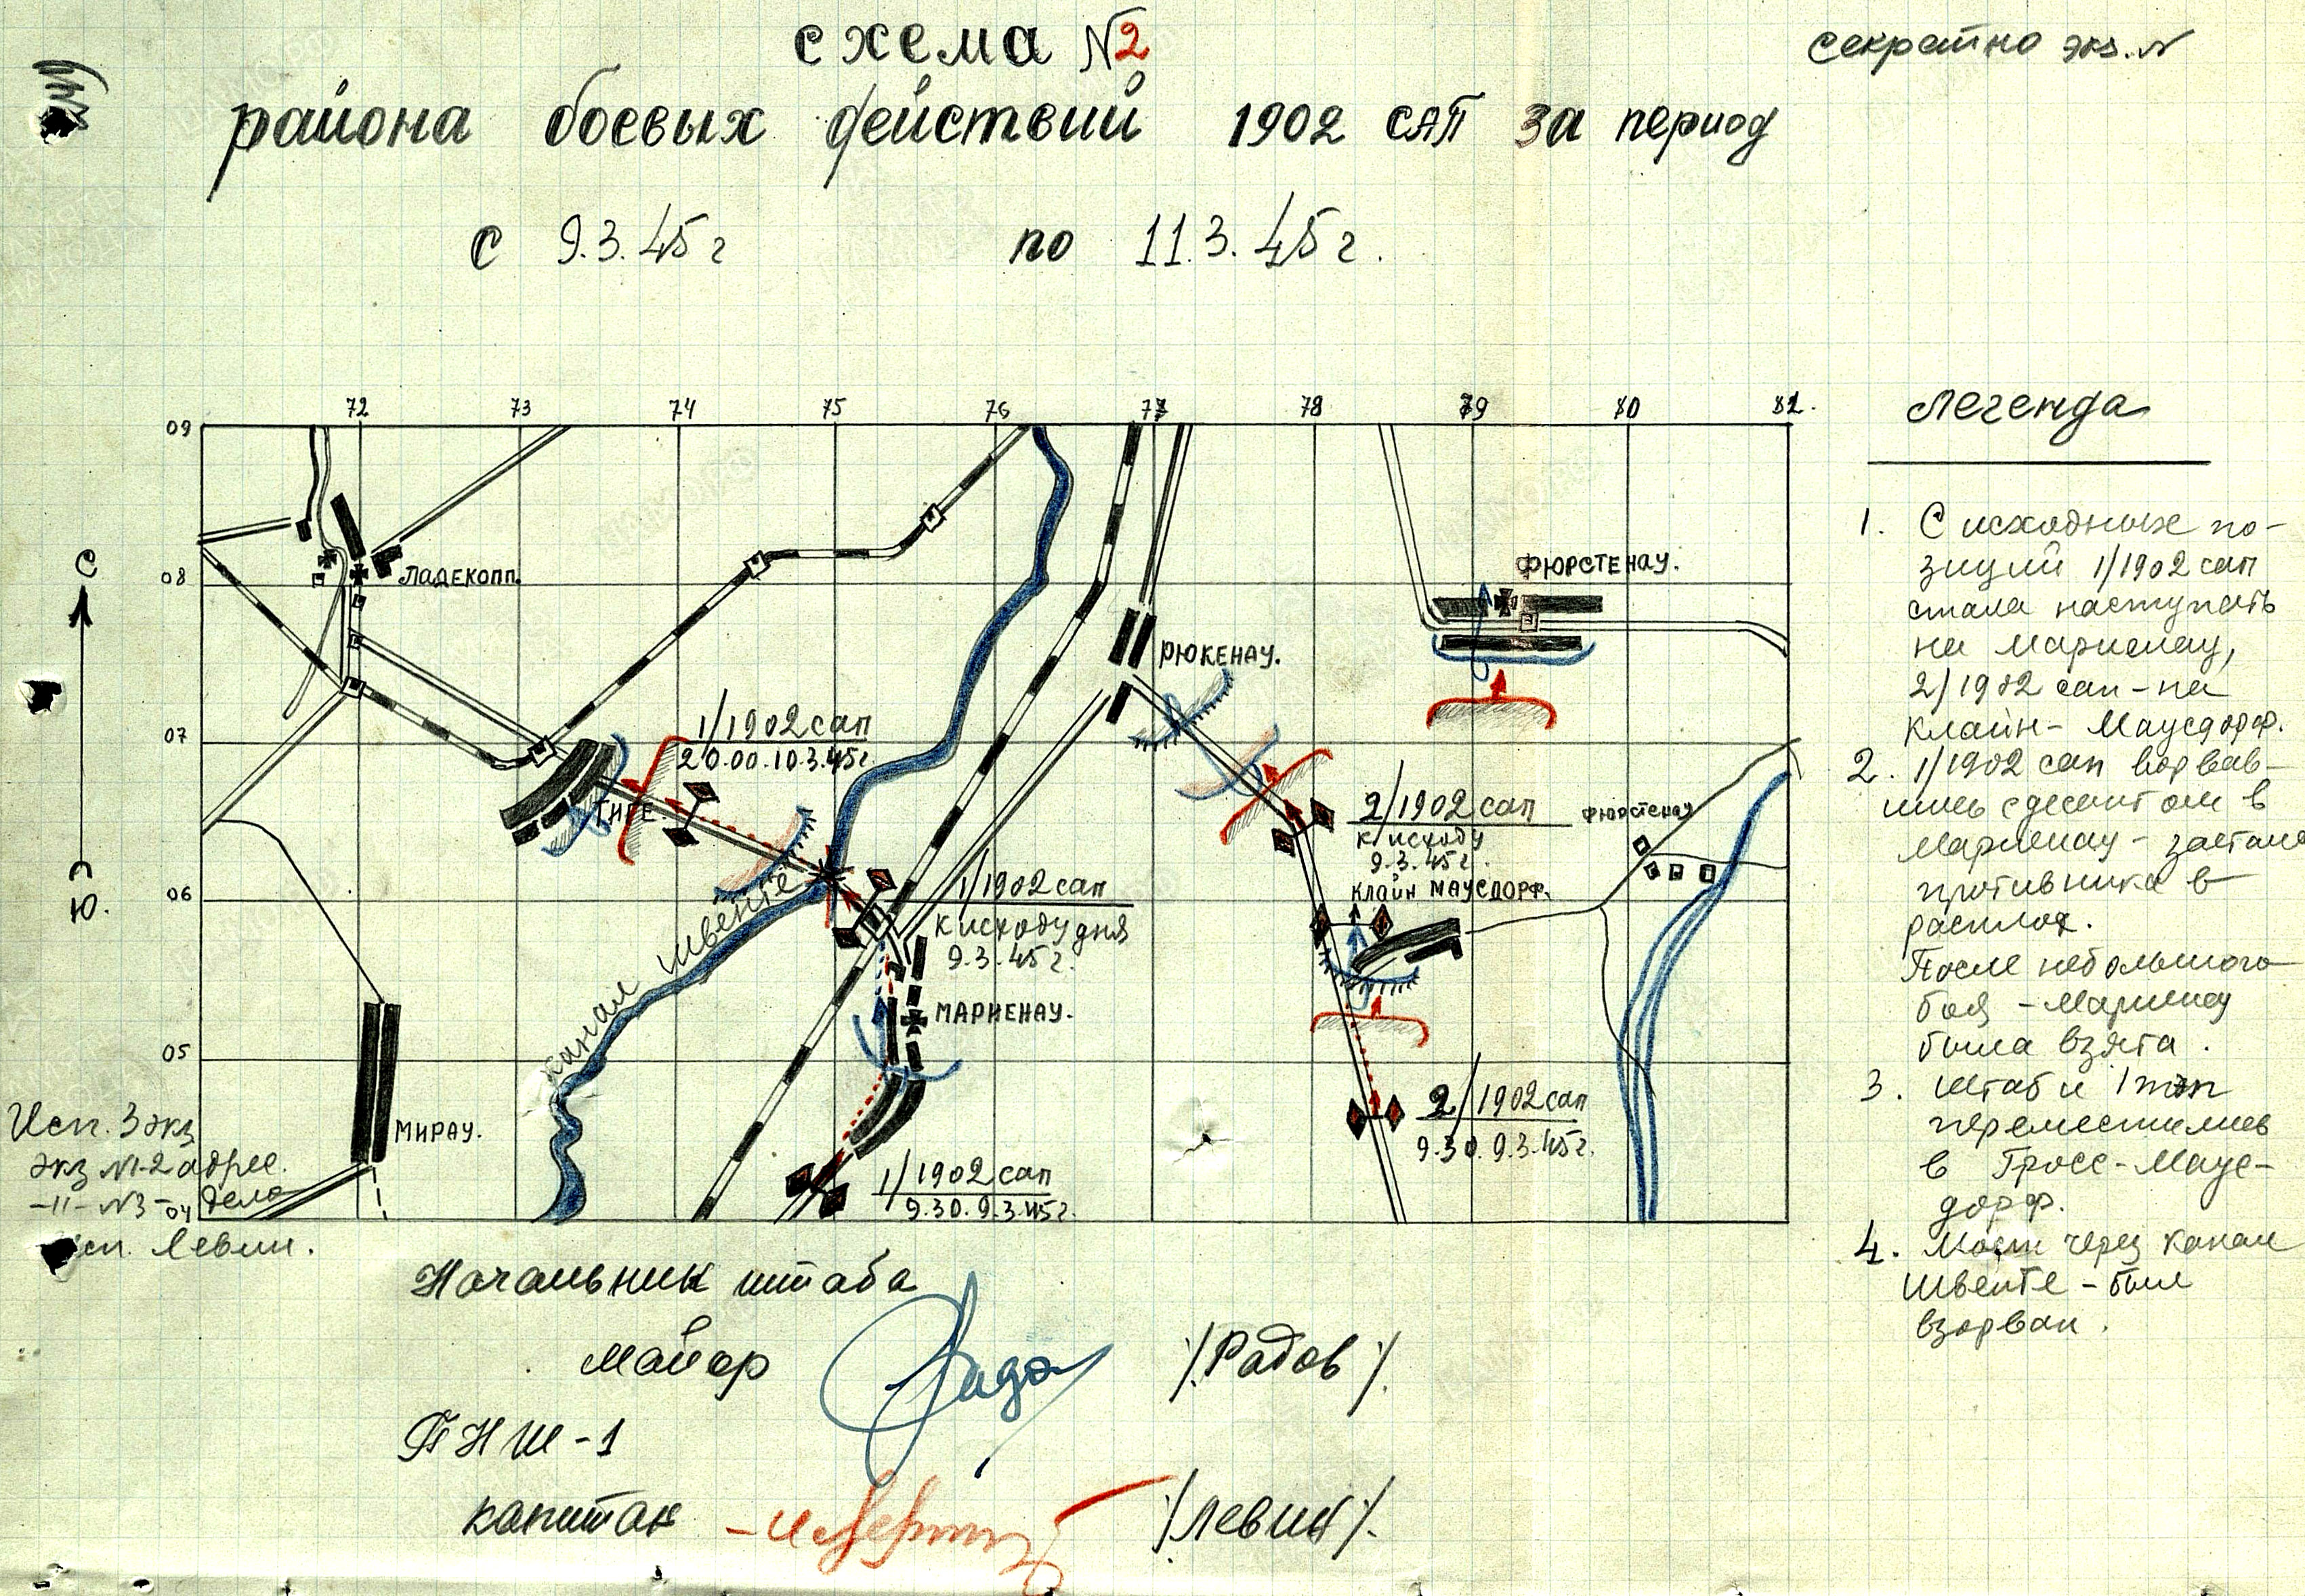 схема №2
секретно экз. №
района боевых действий 1902 САП за период
с 9.3.45 г по 11.3.45 г.
72 73 74 75 76 77 78 79 80 81.
09
08
07
06
05
04
С
Ю.
ЛАДЕКОПП.
ФЮРСТЕНАУ.
РЮКЕНАУ.
1/1902 сап
20.00.10.3.45г
ТИГЕ.
2/1902 сап
к исходу
9.3.45г.
ФЮРСТЕНАУ
КЛАЙН МАУСДОРФ.
1/1902 сап
К исходу дня
9.3.45г.
канал Швенте
МАРИЕНАУ.
МИРАУ.
2/1902 сап
9.30.9.3.45г.
1/1902 сап
9.30.9.3.45г.
Легенда
1. С исходных по-
зиций 1/1902 сап
стала наступать
на Мариенау,
2/1902 сап - на
Клайн-Маусдорф.
2. 1/1902 сап ворвав-
шись с десантом в
Мариенау - застала
противника в
расплох.
После небольшого
боя - Мариенау
была взята.
3. Штаб и
переместились
в Гросс-Маус-
дорф.
4. Мост через канал
Швенте - был
взорван.
Исп. 3 экз
экз №1-2 адрес.
-11- №3 - дело
исп. Левин.
Начальник штаба
майор /Радов/.
ПНШ-1
капитан /Левин/.